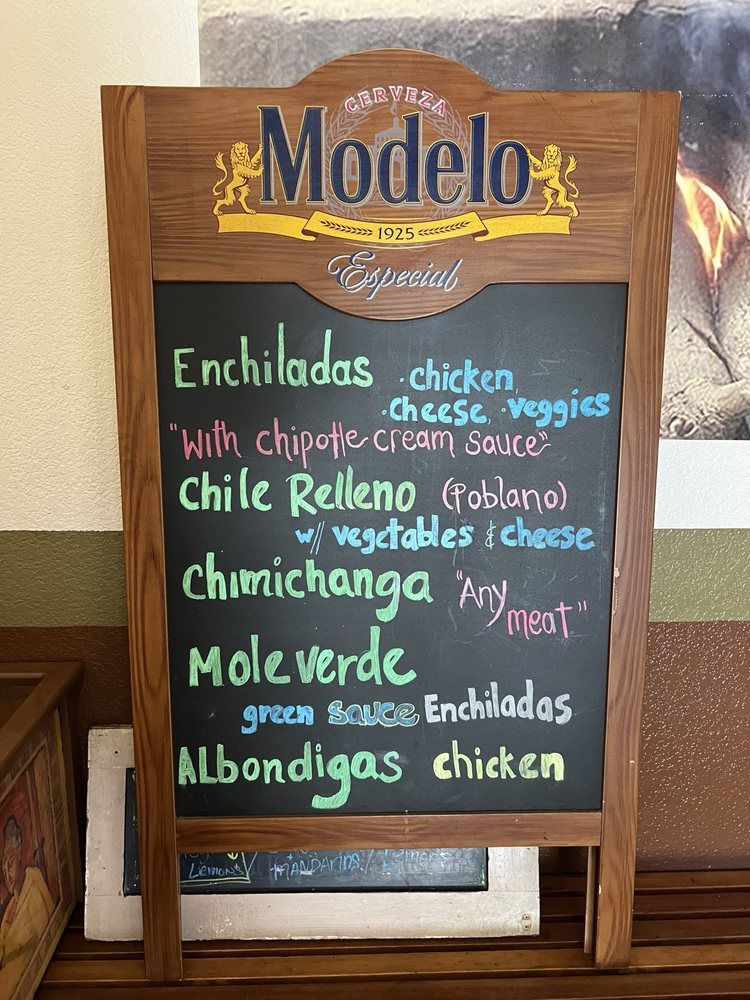 CERVEZA
Modelo
1925
Especial
Enchiladas · chicken,
· cheese, · veggies
"With chipotle cream sauce"
Chile Relleno (Poblano)
w/ vegetables & cheese
Chimichanga "Any
meat"
Mole verde
green sauce Enchiladas
ALbondigas chicken
Lemons / MANDARINS /